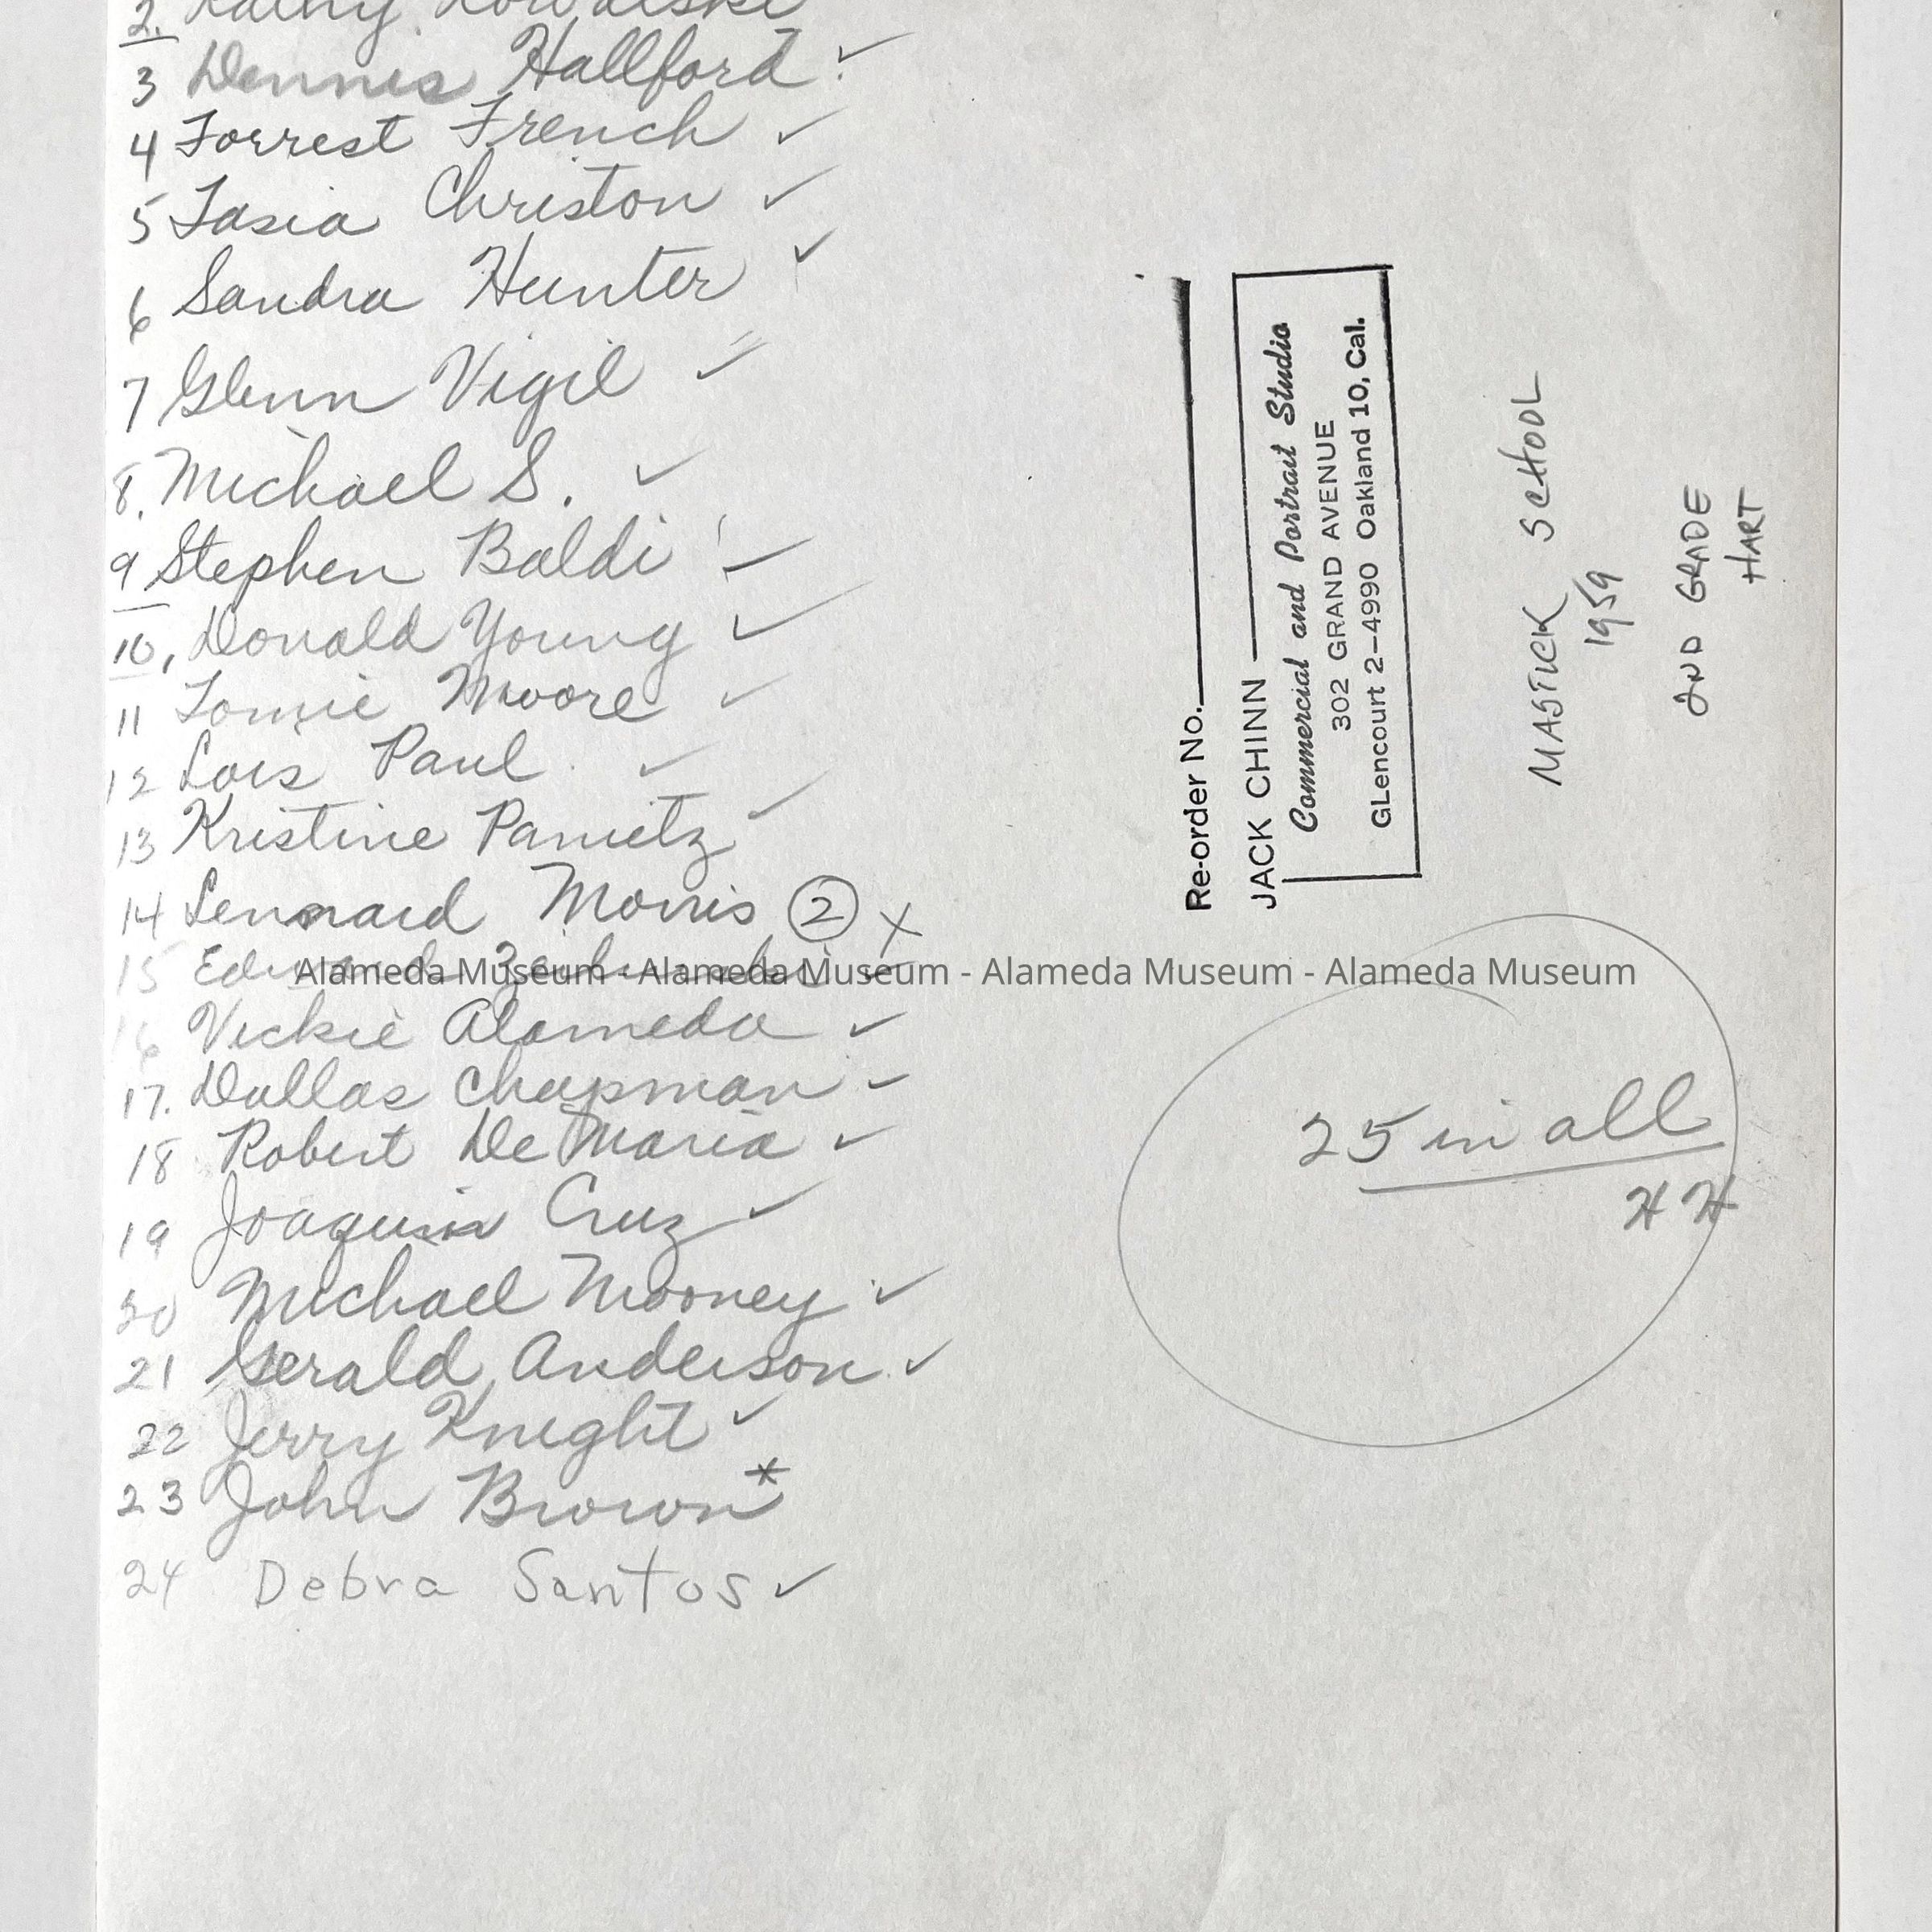 2. Kathy Kowalski
3 Dennis Hallford ✓
4 Forrest French ✓
5 Tasia Christon ✓
6 Sandra Hunter ✓
7 Glenn Vigil ✓
8. Michael S. ✓
9 Stephen Baldi ✓
10. Donald Young ✓
11 Tommie Moore ✓
12 Lois Paul ✓
13 Kristine Panietz ✓
14 Lennard Morris ② X
15
Alameda Museum - Alameda Museum - Alameda Museum - Alameda Museum
16 Vickie Alameda ✓
17. Dallas Chapman ✓
18 Robert De Maria ✓
19 Joaquin Cruz ✓
20 Michael Mooney ✓
21 Gerald Anderson ✓
22 Jerry Knight ✓
23 John Brown *
24 Debra Santos ✓
Re-order No.
JACK CHINN
Commercial and Portrait Studio
302 GRAND AVENUE
GLencourt 2-4990 Oakland 10, Cal.
MASTICK SCHOOL
1959
2ND GRADE
HART
25 in all
HH